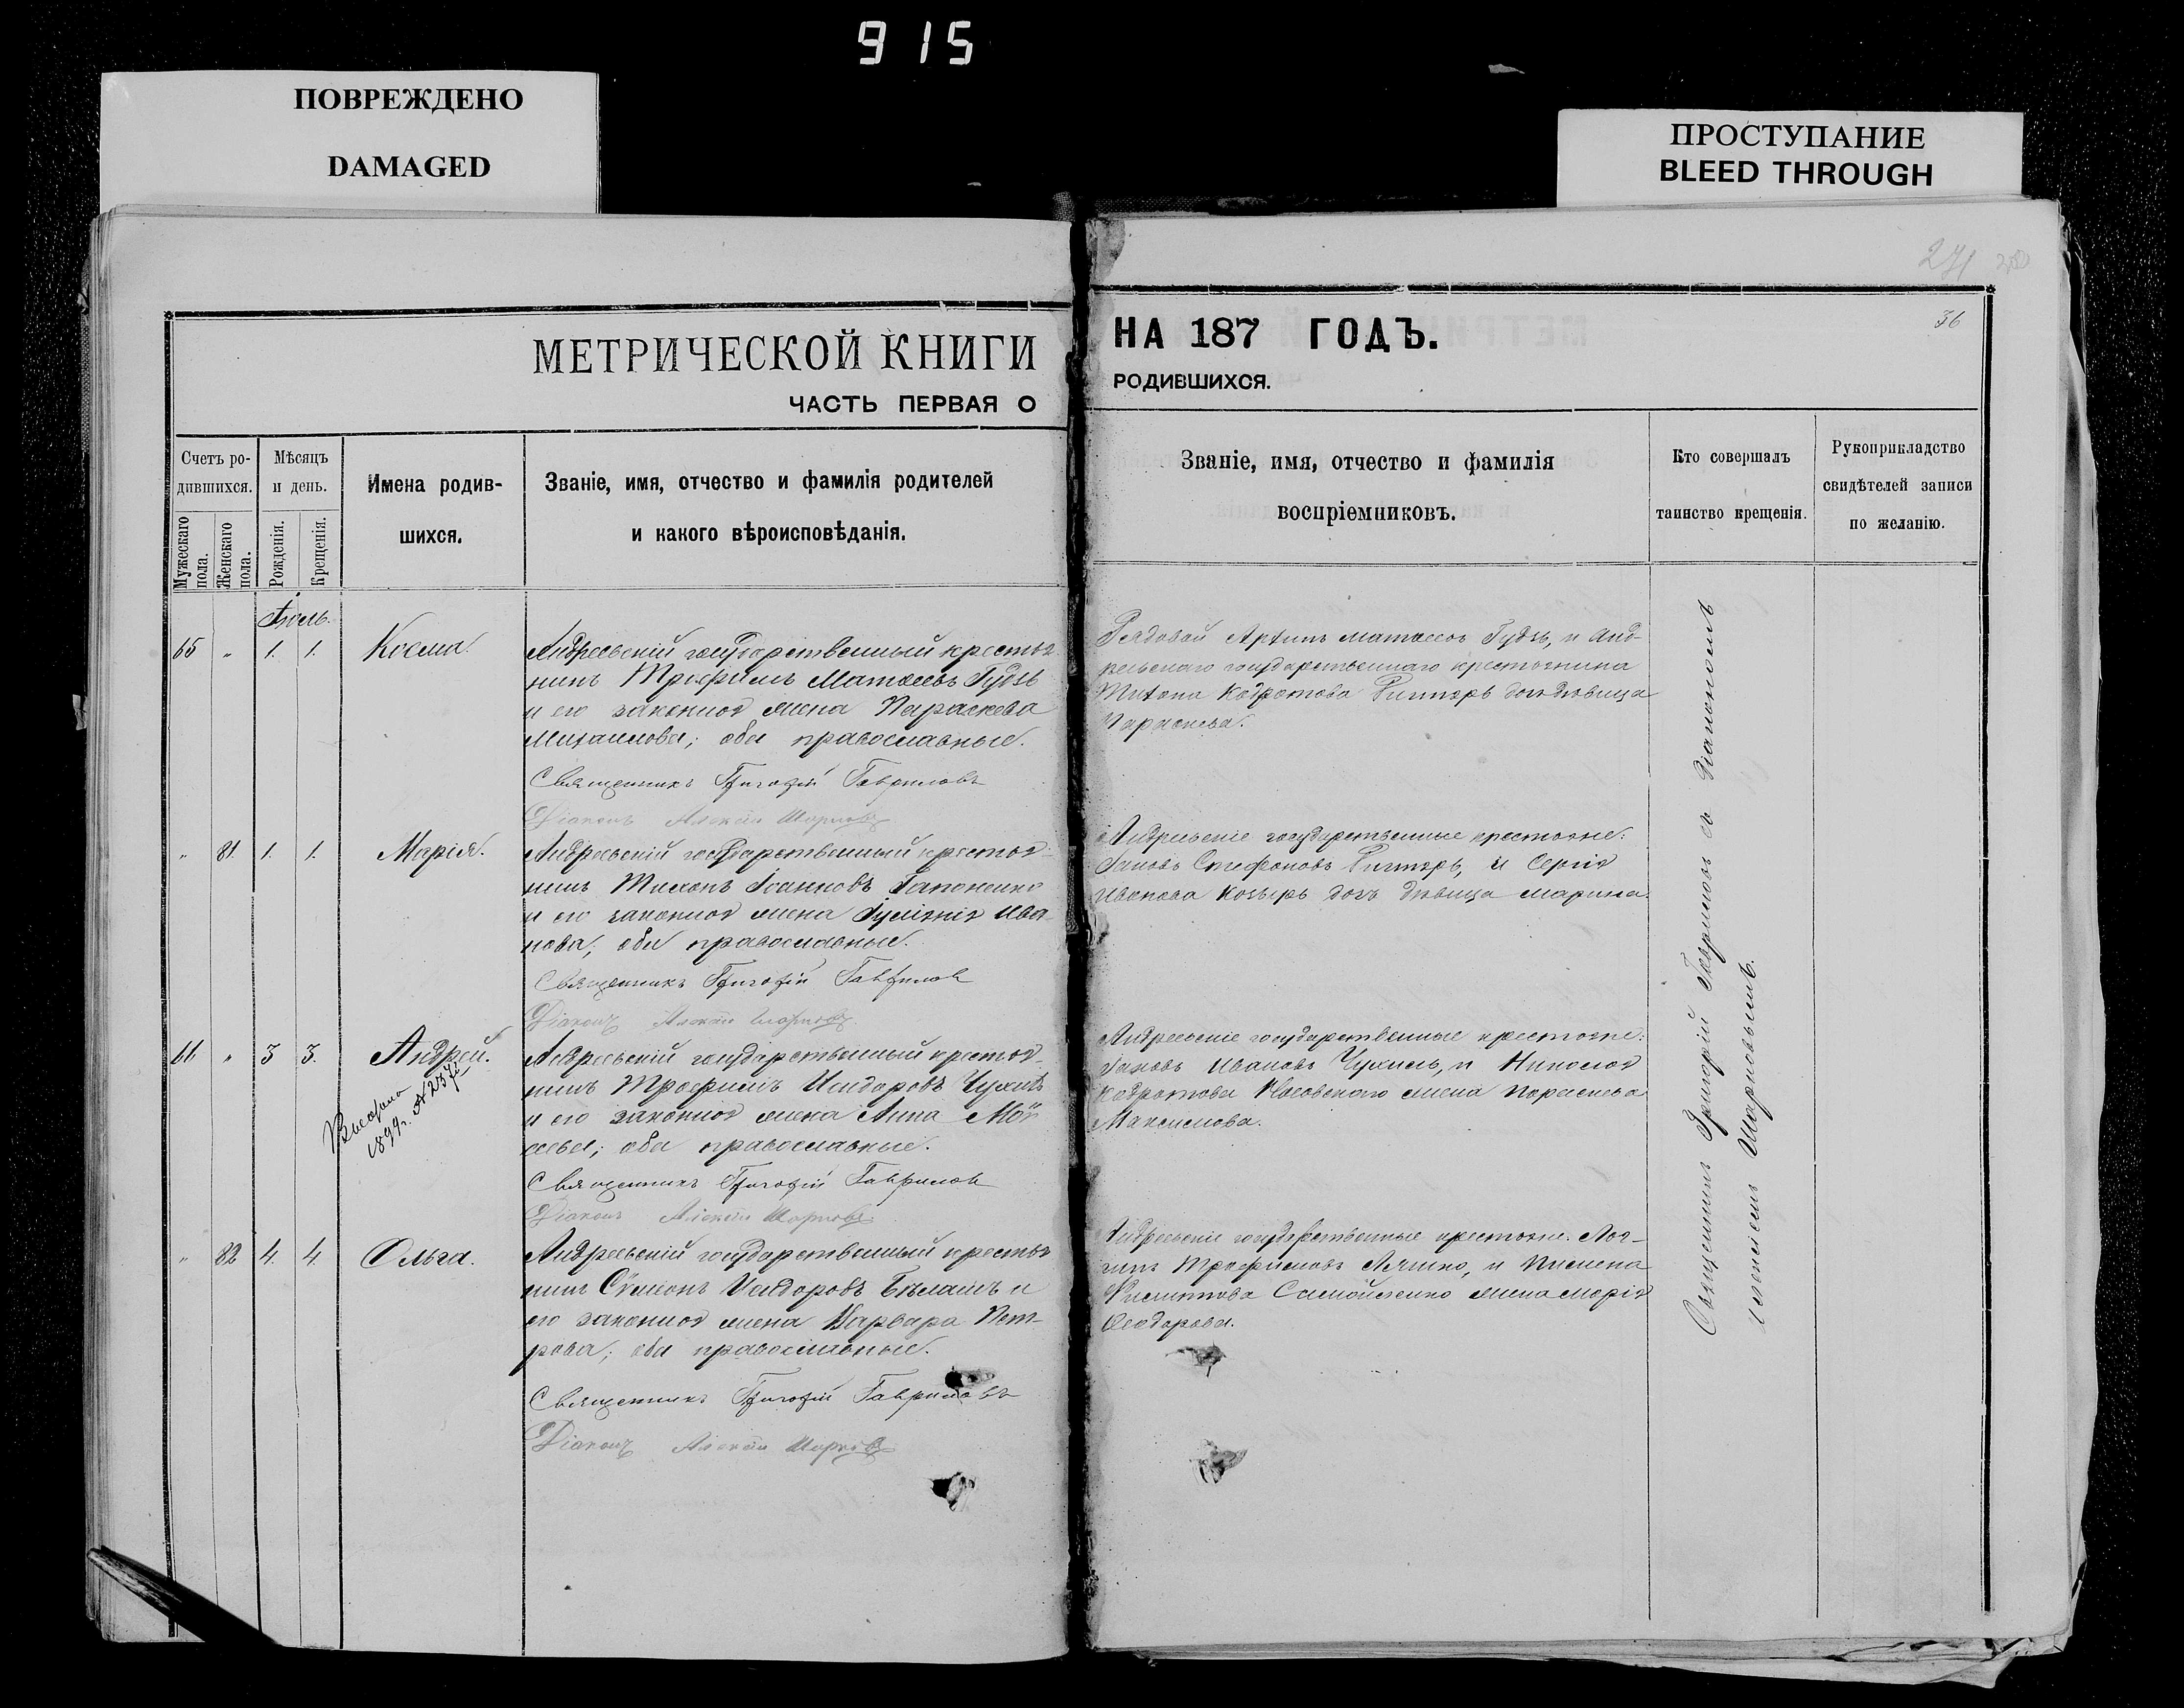 915
ПОВРЕЖДЕНО
DAMAGED
ПРОСТУПАНИЕ
BLEED THROUGH
271
36
МЕТРИЧЕСКОЙ КНИГИ
ЧАСТЬ ПЕРВАЯ О
НА 187 ГОДЪ.
РОДИВШИХСЯ.
Счетъ ро-
дившихся.
Мужескаго пола.
Женскаго пола.
Мѣсяцъ
и день.
Рожденія.
Крещенія.
Имена родив-
шихся.
Званіе, имя, отчество и фамилія родителей
и какого вѣроисповѣданія.
Званіе, имя, отчество и фамилія
воспріемниковъ.
Кто совершалъ
таинство крещенія.
Рукоприкладство
свидѣтелей записи
по желанію.
65 " 1. 1. Косма.
Андреевскій государственный крестья
нинъ Трофимъ Матвеевъ Гудзь
и его законноя жена Параскева
Михаилова; оба православные.
Священникъ Григорій Гавриловъ
Діаконъ Алексій
Рядовой Артимъ Матвеевъ Гудзь, и Анд-
реевскаго государственнаго крестьянина
Титона Кодратова дочь девица
Параскева.
" 81. 1. 1. Марія.
Андреевскій государственный крестья-
нинъ Тихонъ Іоанновъ Гапоненко
и его законноя жена Іуліянія Ива
нова; оба православные.
Священникъ Григорій Гаврилов
Діаконъ Алексій
Андреевскіе государственные крестьяне:
Іаковъ Стефановъ и Сергія
Иванова Козырь дочь девица Марина.
66 " 3 3. Андрей.
1899г. № 237
Андреевскій государственный крестья-
нинъ Трофимъ Исидоровъ Чухиль
и его законноя жена Анна Мой
сеева; оба православные.
Священникъ Григорій Гаврилов
Діаконъ Алексій
Андреевскіе государственные крестьяне:
Іаковъ Ивановъ Чухиль, и Николая
Кодратова жена Параскева
Максимова.
" 82 4. 4. Ольга.
Андреевскій государственный крестья
нинъ Сѵмеонъ Исидоровъ Бѣлашъ и
его законноя жена Варвара Пет-
рова; оба православные.
Священникъ Григорій Гавриловъ
Діаконъ Алексій
Андреевскіе государственные крестьяне. Лог-
гинъ Трофимовъ Ляшко, и Пимена
Самойленко жена Марія
Феодорова.
Священникъ Григорій Гавриловъ съ Діакономъ
Алексіемъ